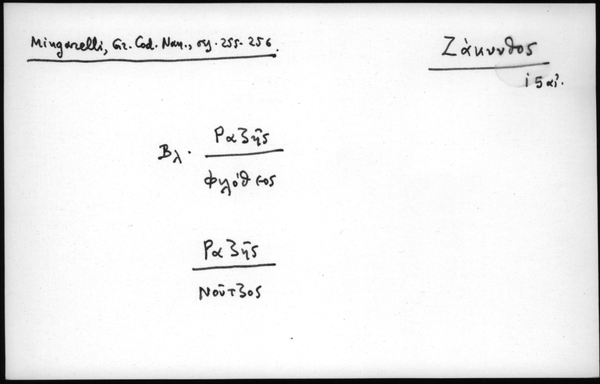 Mingarelli, Gr. Cod. Nan., σσ. 255-256.
Ζάκυνθος
15 αἰ.
Βλ. Ραζῆς
Φιλόθεος
Ραζῆς
Νοῦτζος